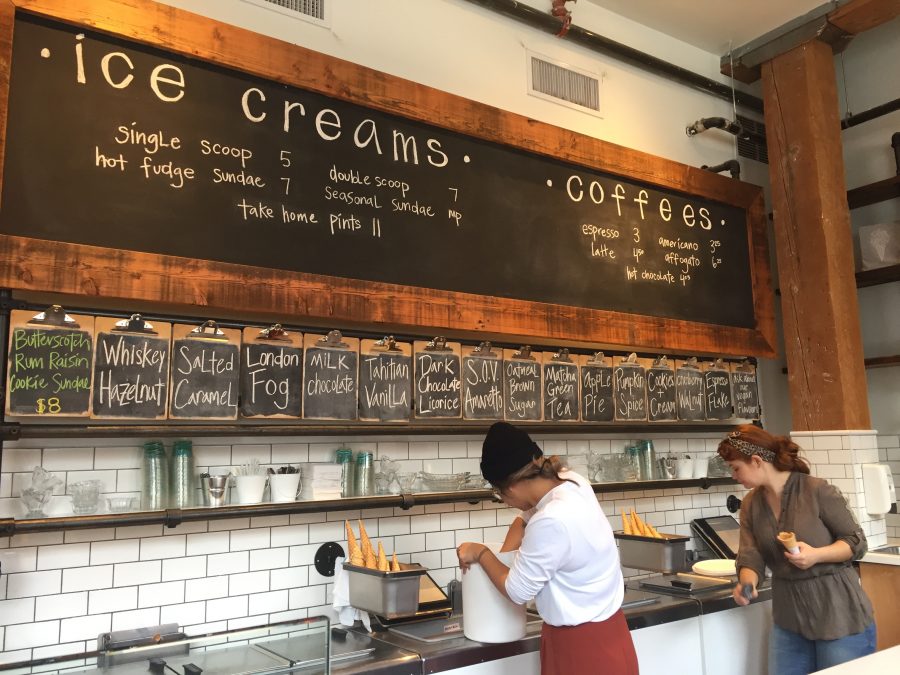 · ice creams ·
single scoop 5
hot fudge sundae 7
double scoop 7
seasonal sundae mp
take home pints 11
· coffees ·
espresso 3
latte 4⁵⁰
americano 3²⁵
affogato 6²⁵
hot chocolate 4²⁵
Butterscotch
Rum Raisin
Cookie Sundae
$8
Whiskey
Hazelnut
Salted
Caramel
London
Fog
Milk
chocolate
Tahitian
Vanilla
Dark
Chocolate
Licorice
S.O.V.
Amaretto
Oatmeal
Brown
Sugar
Matcha
Green
Tea
Apple
Pie
Pumpkin
Spice
Cookies
+
Cream
Walnut
Espresso
Flake
Ask about
vegan